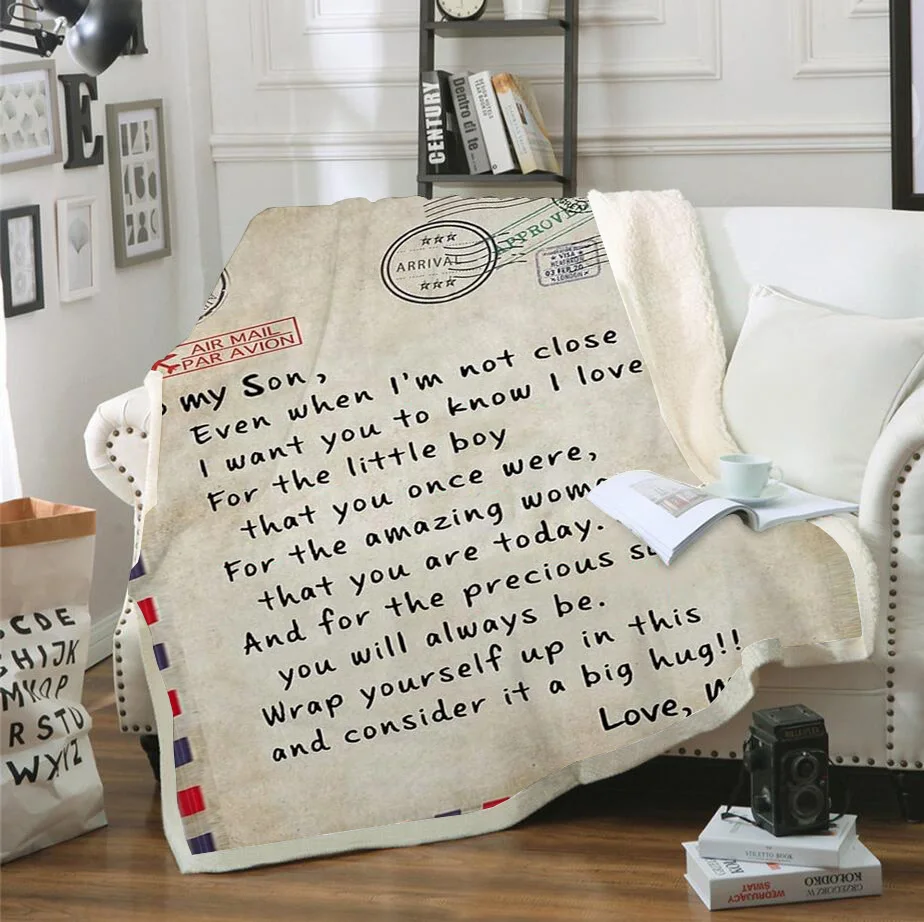 E
CENTURY
Dentro di te
ARRIVAL
APPROVED
VISA
HEATHROW
03 FEB 20
LONDON
AIR MAIL
PAR AVION
my Son,
Even when I'm not close
I want you to know I love
For the little boy
that you once were,
For the amazing
that you are today.
And for the precious
you will always be.
Wrap yourself up in this
and consider it a big hug!!
Love,
CDE
HIJK
R S T U
W X Y Z
STILETTO BOOK
GRZEGORZ W
KOŁODKO
WĘDRUJĄCY
ŚWIAT